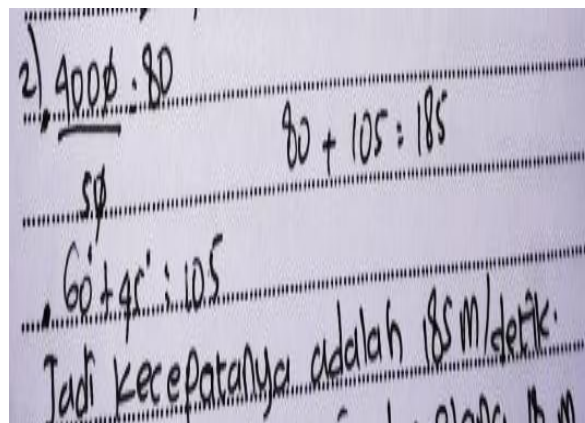 2) 4000 : 80
50
80 + 105 : 185
60' + 45' : 105
Jadi kecepatanya adalah 185 M/detik.